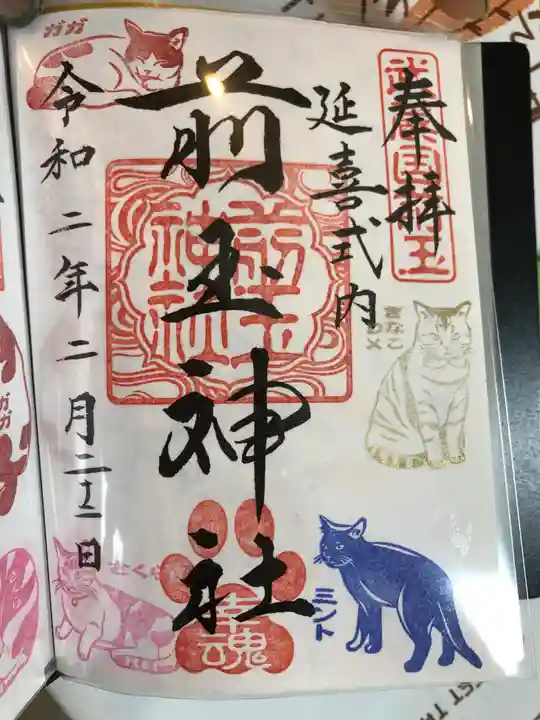 奉拝
延喜式内
前玉神社
令和二年二月二十二日
ガガ
きなこ
さくら
ミント
幸魂
前玉
神社